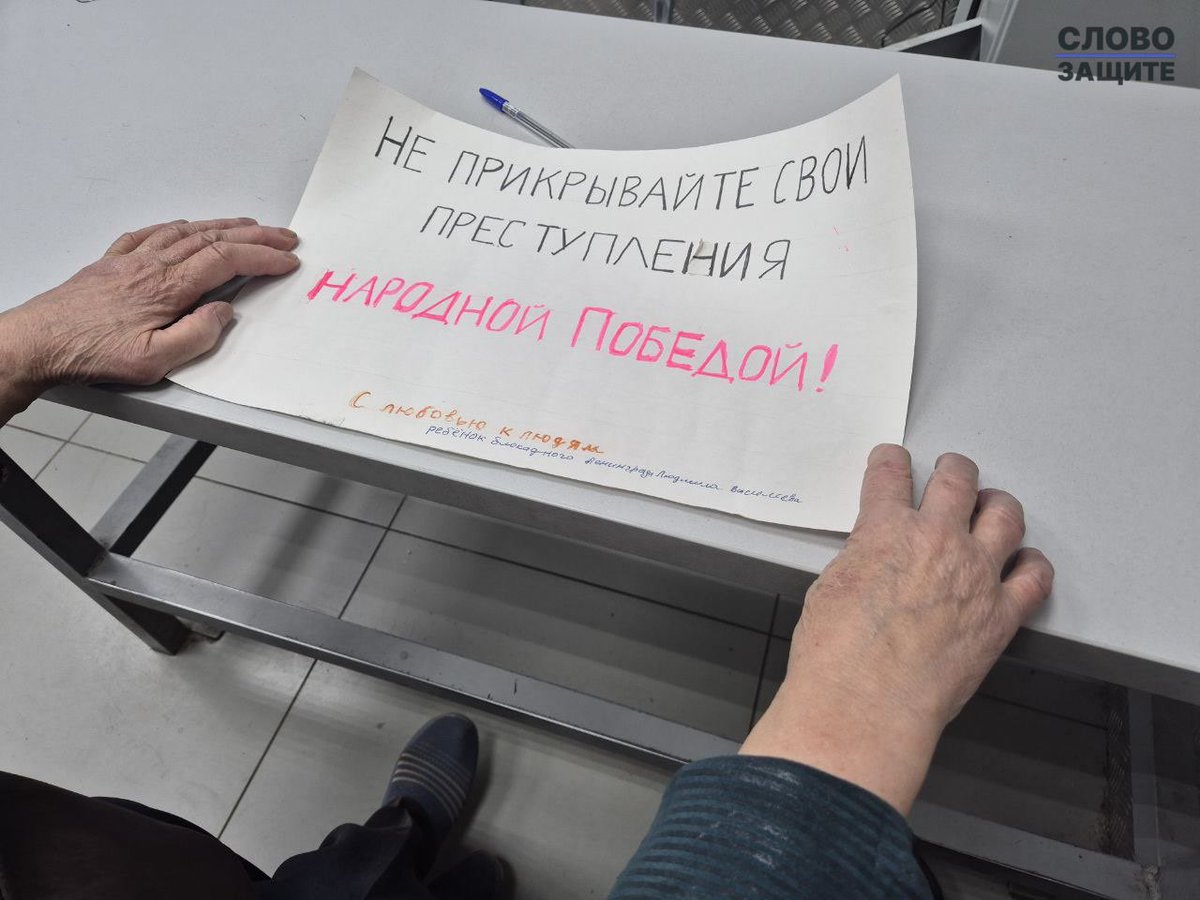 СЛОВО
ЗАЩИТЕ
НЕ ПРИКРЫВАЙТЕ СВОИ
ПРЕСТУПЛЕНИЯ
НАРОДНОЙ ПОБЕДОЙ!
С любовью к людям
ребёнок блокадного Ленинграда Людмила Васильева